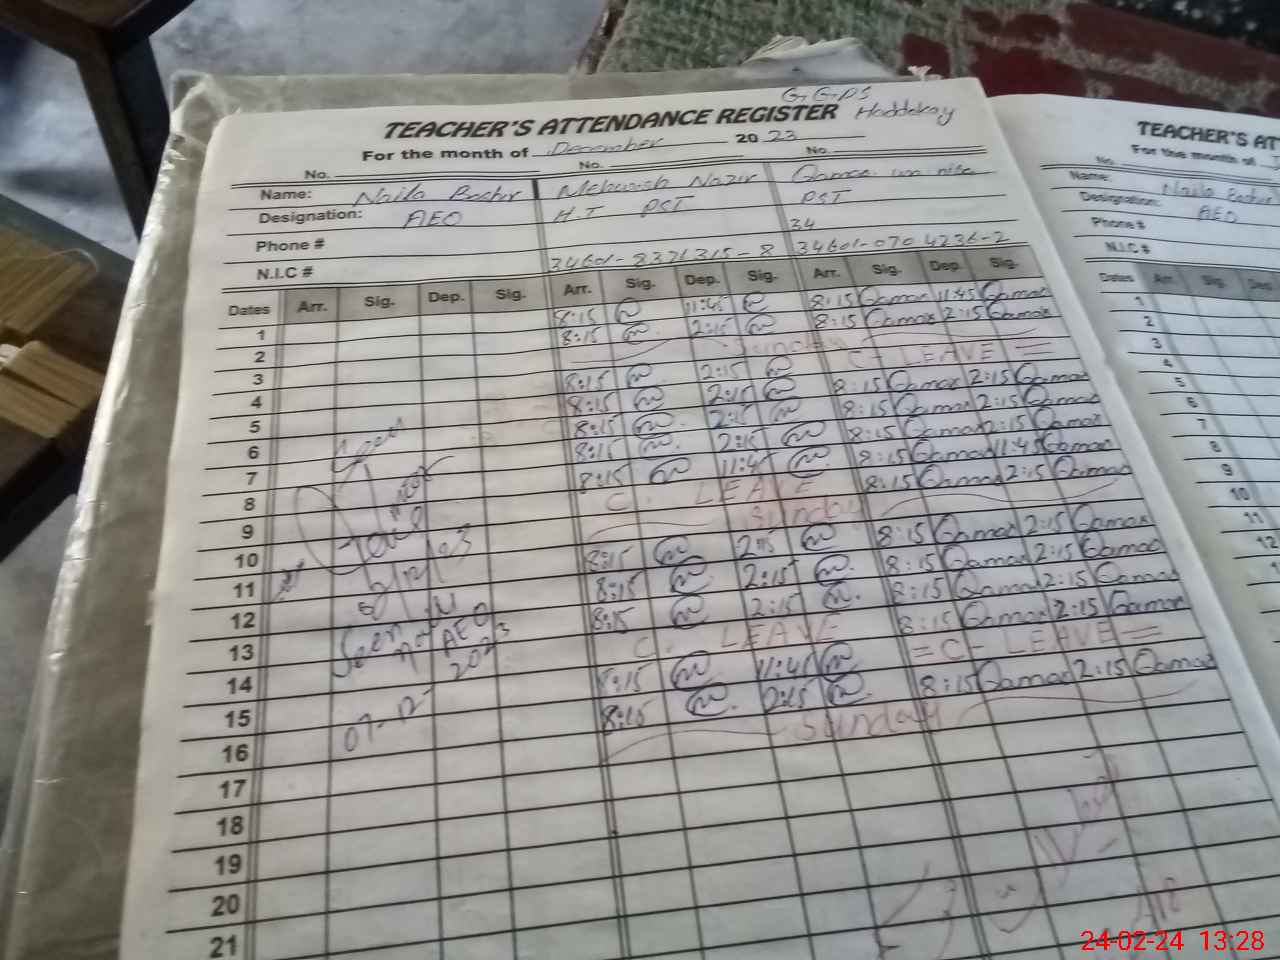 G.G.PS
TEACHER'S ATTENDANCE REGISTER Haddokay
For the month of December 2023
No. No. No.
Name: Naila Bashir Mehwish Nazir Qamar un nisa
Designation: AEO H.T PST PST
Phone # 34
N.I.C # 34601-8321315-8 34601-070 4236-2
Dates Arr. Sig. Dep. Sig. Arr. Sig. Dep. Sig. Arr. Sig. Dep. Sig.
1 8:15 11:45 8:15 Qamar 11:45 Qamar
2 8:15 2:15 8:15 Qamar 2:15 Qamar
3 Sunday
4 8:15 2:15 C- LEAVE =
5 8:15 2:15 8:15 Qamar 2:15 Qamar
6 8:15 2:15 8:15 Qamar 2:15 Qamar
7 8:15 2:15 8:15 Qamar 2:15 Qamar
8 8:15 11:45 8:15 Qamar 11:45 Qamar
9 C. LEAVE 8:15 Qamar 2:15 Qamar
10 Sunday
11 8:15 2:15 8:15 Qamar 2:15 Qamar
12 8:15 2:15 8:15 Qamar 2:15 Qamar
13 8:15 2:15 8:15 Qamar 2:15 Qamar
14 C. LEAVE 8:15 Qamar 2:15 Qamar
15 8:15 11:45 = C- LEAVE =
16 8:15 2:15 8:15 Qamar 2:15 Qamar
17 Sunday
18
19
20
21
Seen
AEO
07-12-2023
TEACHER'S AT
For the month of
No.
Name: Naila Bashir
Designation: AEO
Phone #
N.I.C #
Dates Arr. Sig. Dep.
1
2
3
4
5
6
7
8
9
10
11
12
24-02-24 13:28